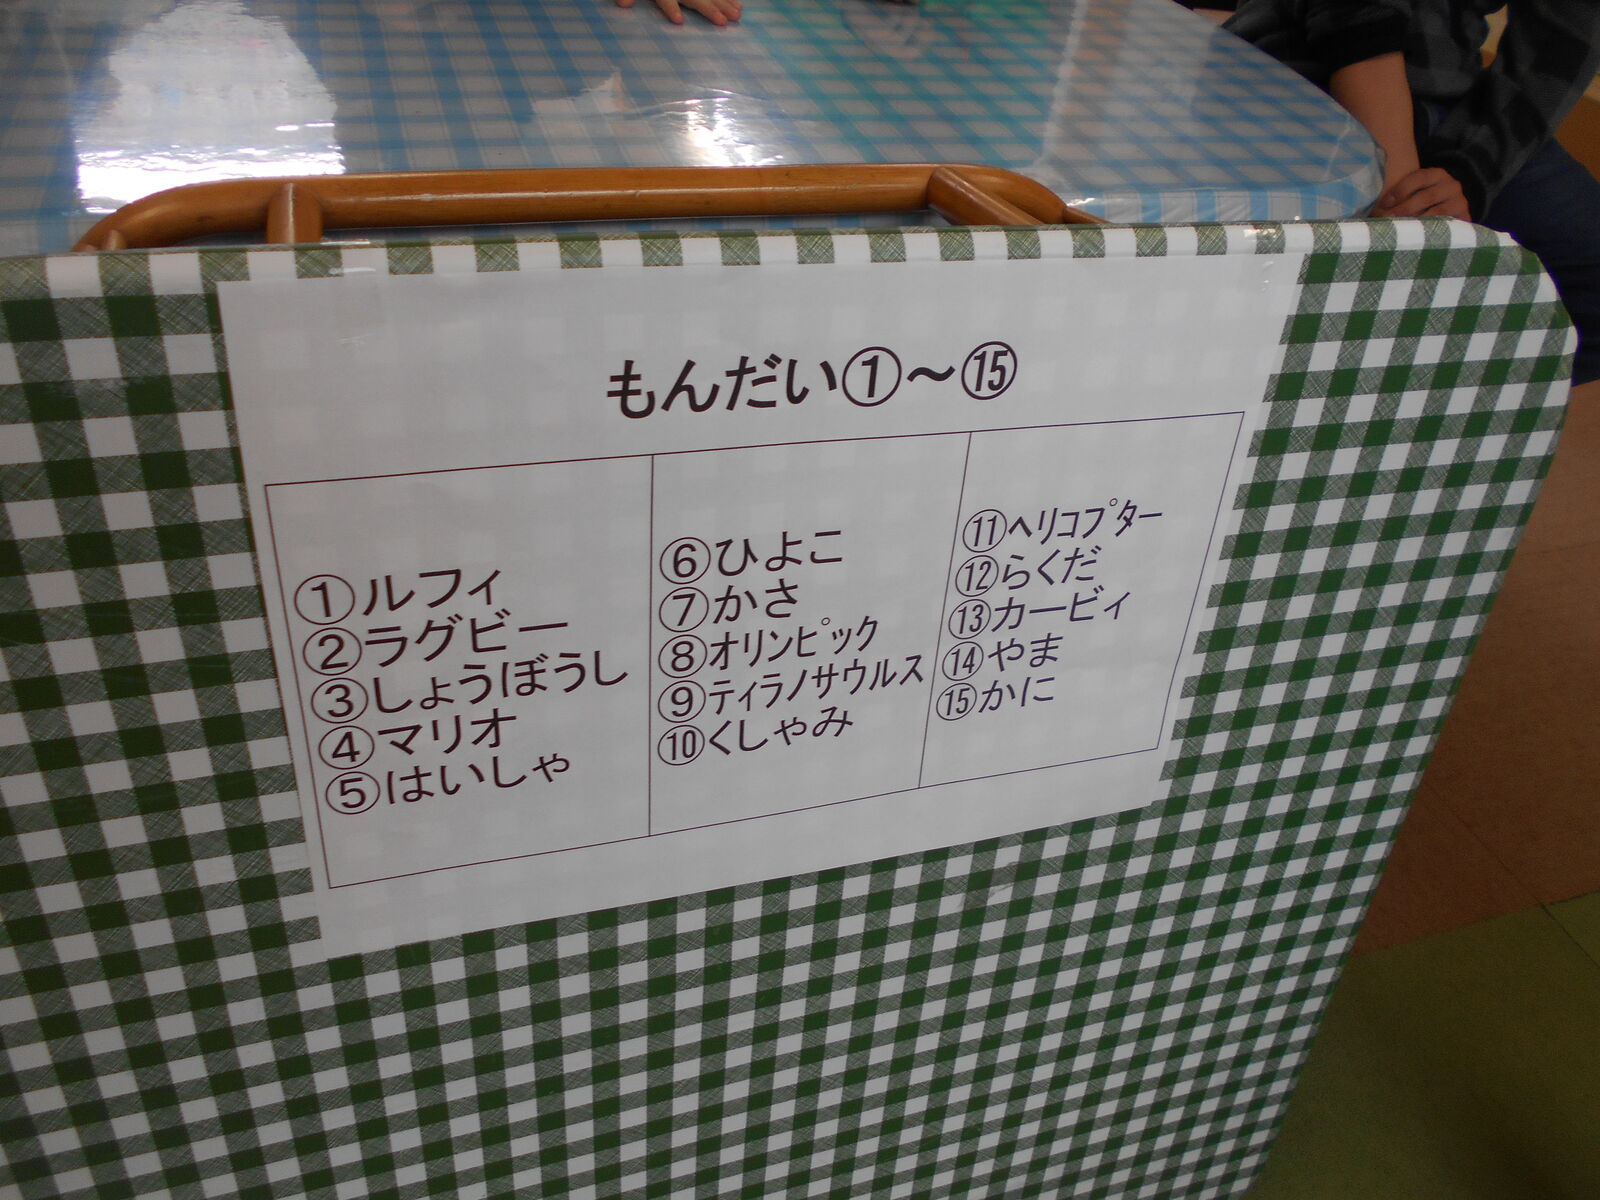 もんだい①～⑮
①ルフィ
②ラグビー
③しょうぼうし
④マリオ
⑤はいしゃ
⑥ひよこ
⑦かさ
⑧オリンピック
⑨ティラノサウルス
⑩くしゃみ
⑪ヘリコプター
⑫らくだ
⑬カービィ
⑭やま
⑮かに